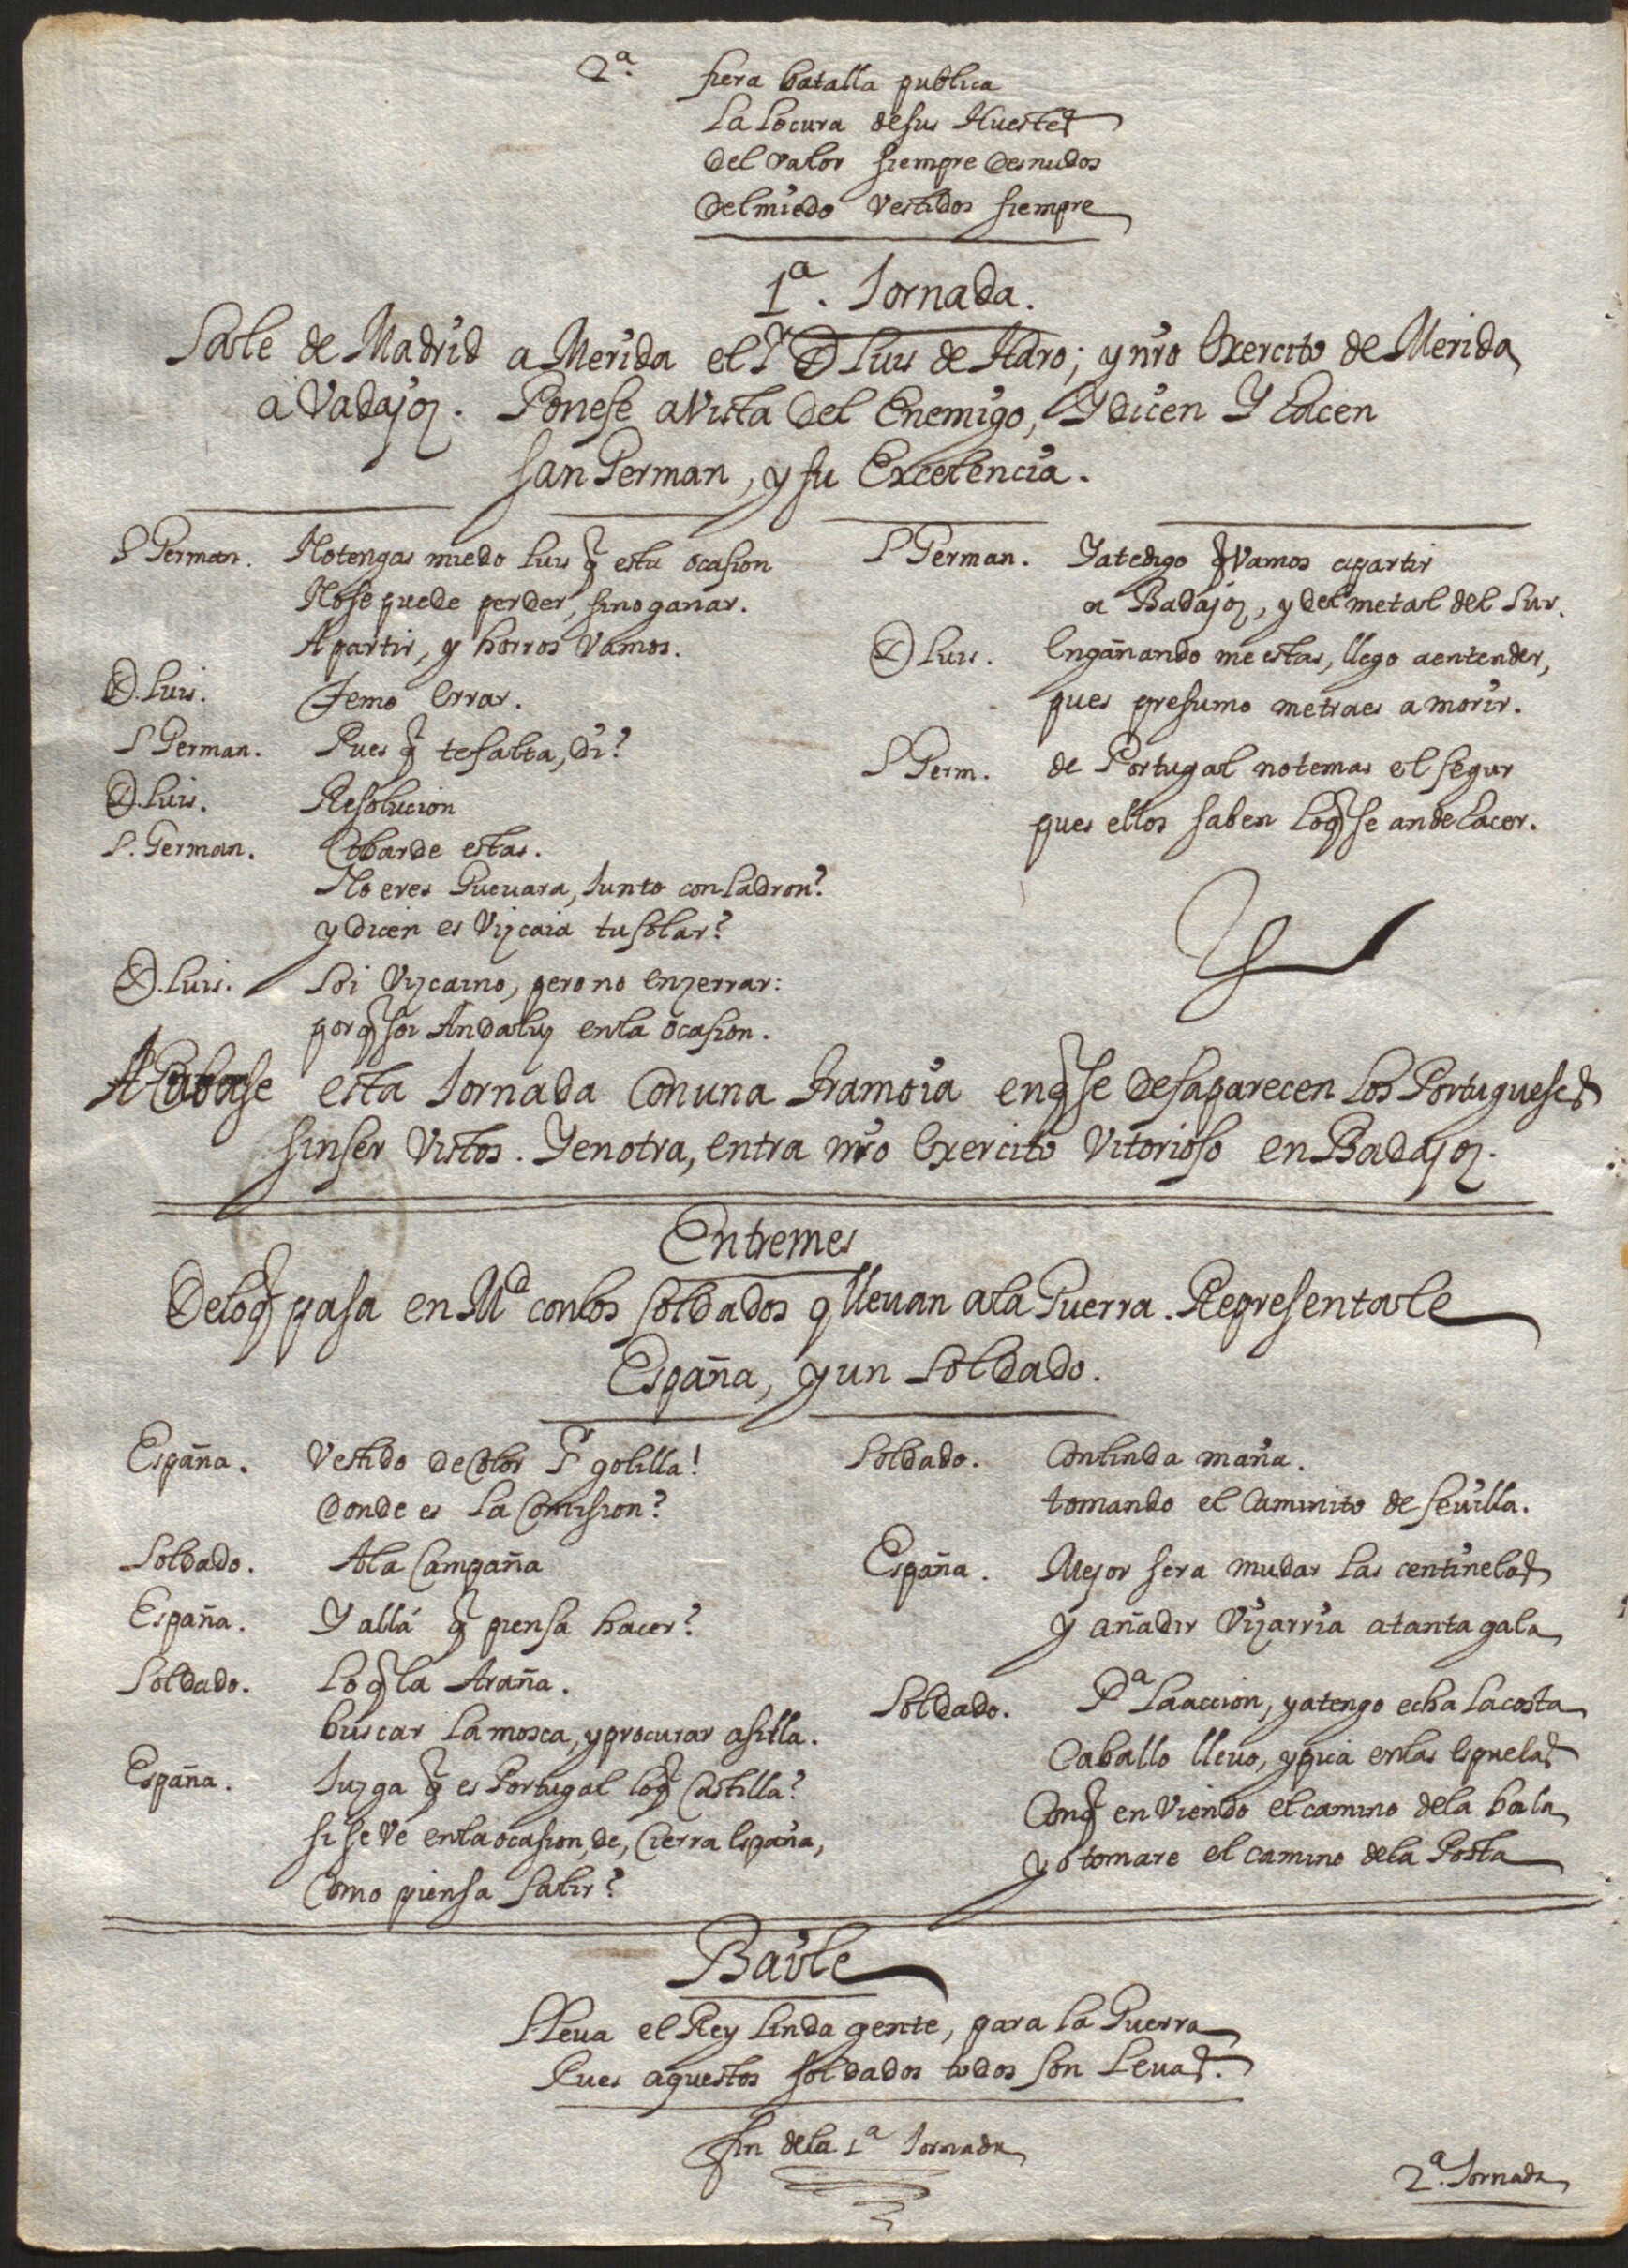 2ª. fiera batalla publica
La Locura desus Huestes
Del valor siempre desnudos
Del miedo vestidos siempre
1ª. Jornada.
Sale de Madrid a Merida el Sr D Luis de Haro; y nro Exercito de Merida
a Vadajoz. Ponese a vista del Enemigo, Y dicen Y hacen
San German, y su Excelencia.
S German. No tengas miedo Luis q̃ esta ocasion
No se puede perder, sino ganar.
A partir, y horros vamos.
D. Luis. Temo errar.
S German. Pues q̃ te falta, di?
D. Luis. Resolucion
S. German. Cobarde estas.
No eres Gueuara, Junto con Ladron?
y dicen es Vizcaia tu solar?
D. Luis. Soi Vizcaino, pero no en zerrar:
porq̃ soi Andaluz en la ocasion.
S German. Ya te digo q̃ Vamos a partir
a Badajoz, y del metal del Sur.
D Luis. Engañando me estas, llego a entender,
pues presumo me traes a morir.
S Germ. de Portugal no temas el segur
pues ellos saben loq̃ se an de hacer.
Acabase esta Jornada Con una tramoia enq̃ se desaparecen los Portugueses
sin ser vistos. Y en otra, entra nro Exercito Vitorioso en Badajoz.
Entremes
De loq̃ pasa en Md con los Soldados q lleuan a la Guerra. Representale
España, y un Soldado.
España. Vestido de Color Sr golilla!
Donde es La Comision?
Soldado. A la Campaña
España. Y allá q̃ piensa hacer?
Soldado. Lo q̃ la Araña.
buscar la mosca, y procurar asilla.
España. Juzga q̃ es Portugal loq̃ Castilla?
si se vé en la ocasion, de, Cierra España,
Como piensa Salir?
Soldado. Con linda maña.
tomando el Caminito de Seuilla.
España. Mejor sera mudar las centinelas
y añadir Vizarria a tanta gala
Soldado. Pª La accion, ya tengo echa la costa
Caballo lleuo, y pua en las espuelas
Conq̃ en Viendo el camino de la bala
yo tomare el camino de la Posta
Baile
LLeua el Rey linda gente, para la Guerra
Pues aquestos soldados todos son Leuas.
fin de la 1ª Jornada
2ª. Jornada